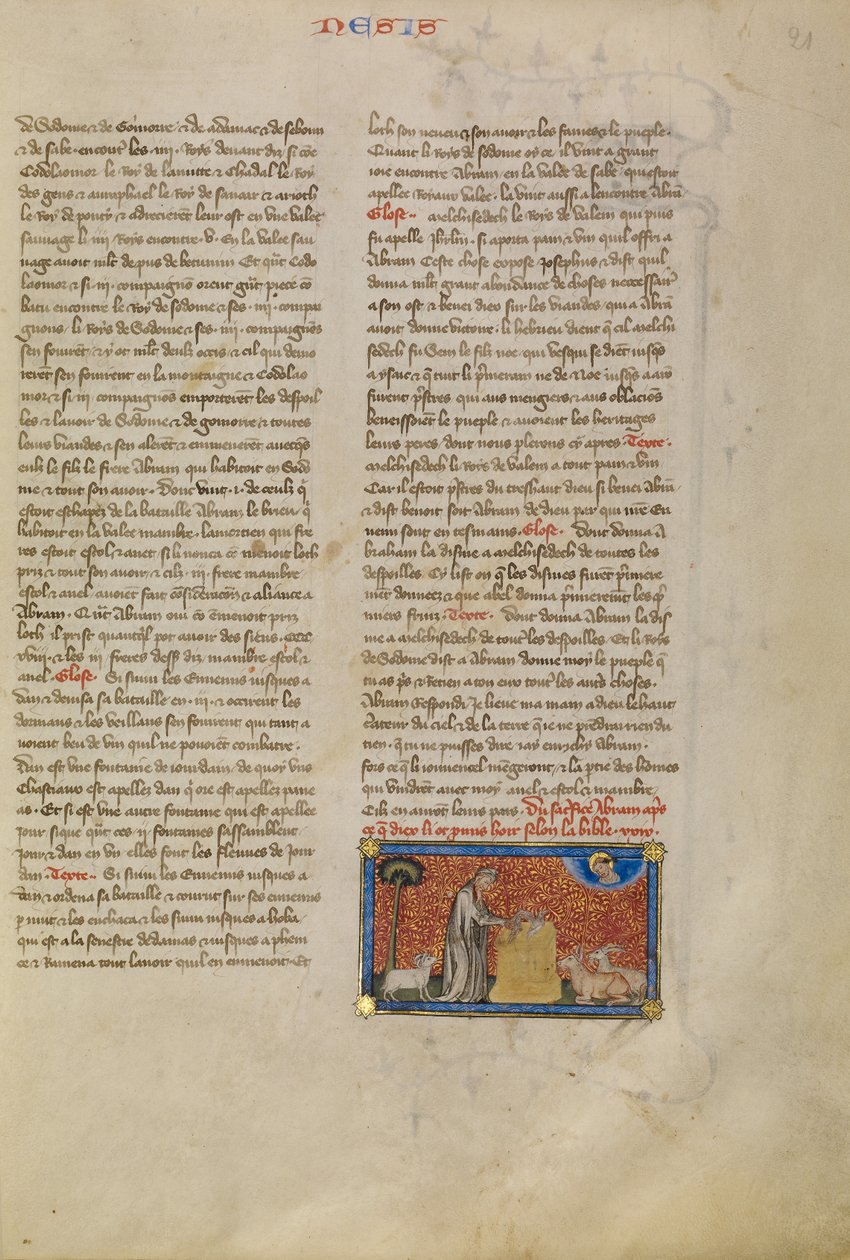 NESIS
21
de Sodome & de Gomorre & de adamac & de seboim
& de sabe encont̃ les iiij Roys deuant diz si cõe
Codolaomor le Roy de lamitte & Chadal le Roy
des gens & amraphael le Roy de sanaar & arioth
le Roy de ponty & adrecierẽt leur ost en vne valee
sauuage li iiij Roys encontre v En la valee sau
uage auoit mlt̃ de puis de betumm Et qũt Codo
laomor & si iij compaignõ orent gũt piece cõ
batu encontre le Roy de sodome & ses iiij compai
gnons li Roys de Sodome & ses iiij compaignõs
sen fouirẽt & y ot mlt̃ deulz ocis & cil qui demo
rerẽt sen fouirent en la montaigne & Codolao
mor & si iij compaignos emporterẽt les despoil
les & lauoir de Sodõme & de gomorre & toutes
leurs viandes & sen alerẽt & enmenerẽt auecq̃s
eulz le filz le frere Abram qui habitoit en Sodo
me & tout son auoir Donc vint i de ceulz q̃
estoit eschapez de la bataille Abram le brieu q̃
habitoit en la valee mambre lamorrien qui fre
res estoit escol & anel si li nonca cõ menoit loth
priz & tout son auoir & cilz iij frere mambre
escol & anel auoiẽt fait cõsideracõn & aliance a
Abram Qũt Abram oui cõ ẽmenoit priz
loth il prist quantq̃l pot auoir des siens ccc
xviij & les iij freres dess diz mambre escol &
anel Glose Si siuui les Ennemis iusques a
dan & deuisa sa bataille en iij & occirent les
dormans & les veillans sen fouirent qui tant a
uoient beu de vin quil ne pouoiẽt combatre
Dan est vne fontaine de iourdam de quoy vns
Chastiaux est apellez dan q̃ ore est apellez pane
as Et si est vne autre fontaine qui est apellee
Jour si que qũt ces ij fontaines sassamblent
Jour & dan en vn elles font les fleuues de Jour
dan Texte Si siuui les Ennemis iusques a
dan & ordena sa bataille & courut sur ses ennemis
p nuit & les enchaca & les siuui iusques a hoba
qui est a la senestre de damas & iusques a phem
ce & Ramena tout lauoir quil en enmenoit Et
loth son neueu & son auoir & les fames & le pueple
Quant li Roys de sodome oy ce il vint a grant
ioie encontre Abram en la valee de sabe qui estoit
apellee Royaux valee la vint aussi a lencontre Abrã
Glose Melchisedech le Roys de valem qui puis
fu apelle Jhrlm̃ si aporta pain & vin quil offri a
Abram Ceste chose expose Josephus & dist quil
donna mlt̃ grant abundance de choses necessair̃
a son ost & benei dieu sur les viandes qui a Abrã
auoit donne victoire li hebrieu dient q̃ cil melchi
sedech fu Sem le filz noe qui vesqui se diẽt iusq̃s
a ysaac & q̃ tuit li p̃merain ne de Noe iusq̃s a aarõ
furent p̃stres qui aus mengiers & aus oblaciõs
beneissoiẽt le pueple & auoient les heritages
leurs peres dont nous plerons cy apres Texte
Melchisedech li Roys de valem a tout pain & vin
Car il estoit p̃stres du treshaut dieu si benei Abrã
& dist benoit soit Abram de dieu par qui nr̃e En
nemi sont en tes mains Glose Donc donna A
braham la disme a melchisedech de toutes les
despoilles Cy list on q̃ les dismes furẽt p̃miere
mẽt donnees & que abel donna p̃mierement les p̃
miers fruiz Texte Dont donna Abram la dis
me a melchisedech de toutes les despoilles Et li Roys
de Sodome dist a Abram donne moy le pueple q̃
tu as p̃s & Retien a ton eux tout̃ les aut̃s choses
Abram Respondi Je lieue ma main a dieu le haut
c̃ateur du ciel & de la terre q̃ ie ne p̃ndrai rien du
tien q̃ tu ne puisses dire iay enrichy Abram
fors ce q̃ li iouuencel mẽgeront & la p̃tie des hõmes
qui vindrẽt auec moy anel & escol & mambre
Cilz en auront leurs pars Du sac̃fice Abram ap̃s
ce q̃ diex li ot p̃mis hoir selon la bible xxiv